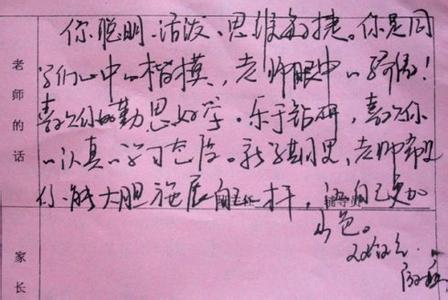 你聪明、活泼、思维敏捷。你是同
学们心中的楷模,老师眼中的骄傲!
喜欢你的勤思好学、乐于钻研,喜欢你
的认真的学习态度。新学期里,老师希望
你能大胆施展自己 才,让自己更加
出色。
老师的话
家长